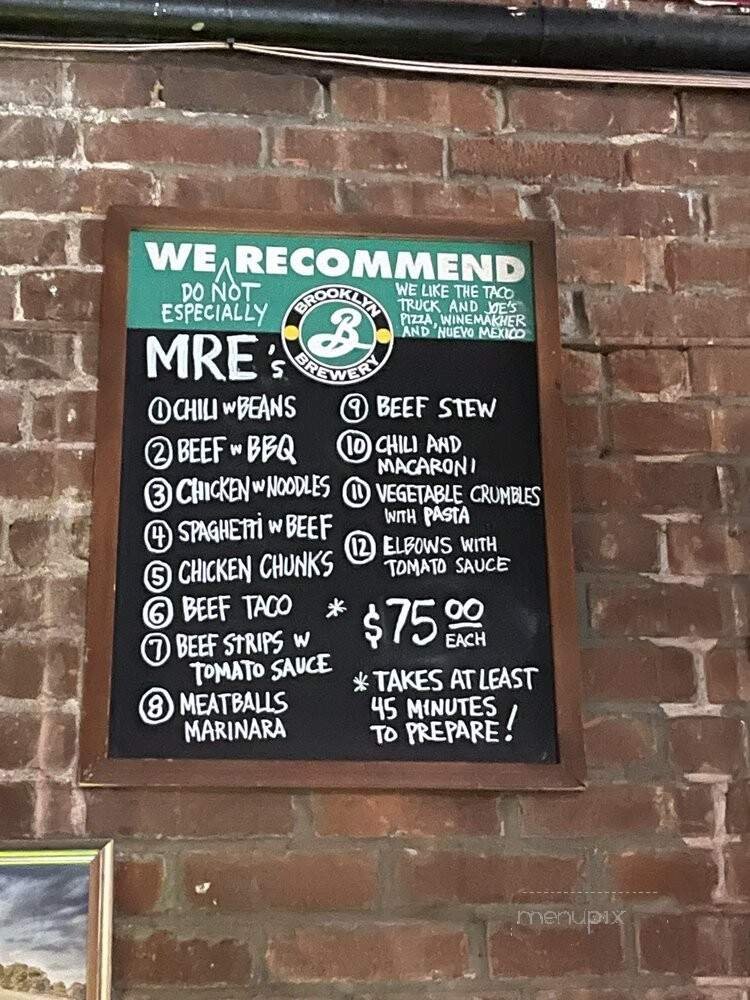 WE RECOMMEND
DO NOT
ESPECIALLY
WE LIKE THE TACO
TRUCK AND JOE'S
PIZZA, WINEMAKHER
AND NUEVO MEXICO
BROOKLYN
B
BREWERY
MRE's
① CHILI w BEANS
② BEEF w BBQ
③ CHICKEN w NOODLES
④ SPAGHETTI w BEEF
⑤ CHICKEN CHUNKS
⑥ BEEF TACO
⑦ BEEF STRIPS W
TOMATO SAUCE
⑧ MEATBALLS
MARINARA
⑨ BEEF STEW
⑩ CHILI AND
MACARONI
⑪ VEGETABLE CRUMBLES
WITH PASTA
⑫ ELBOWS WITH
TOMATO SAUCE
* $75 00
EACH
* TAKES AT LEAST
45 MINUTES
TO PREPARE!
menupix